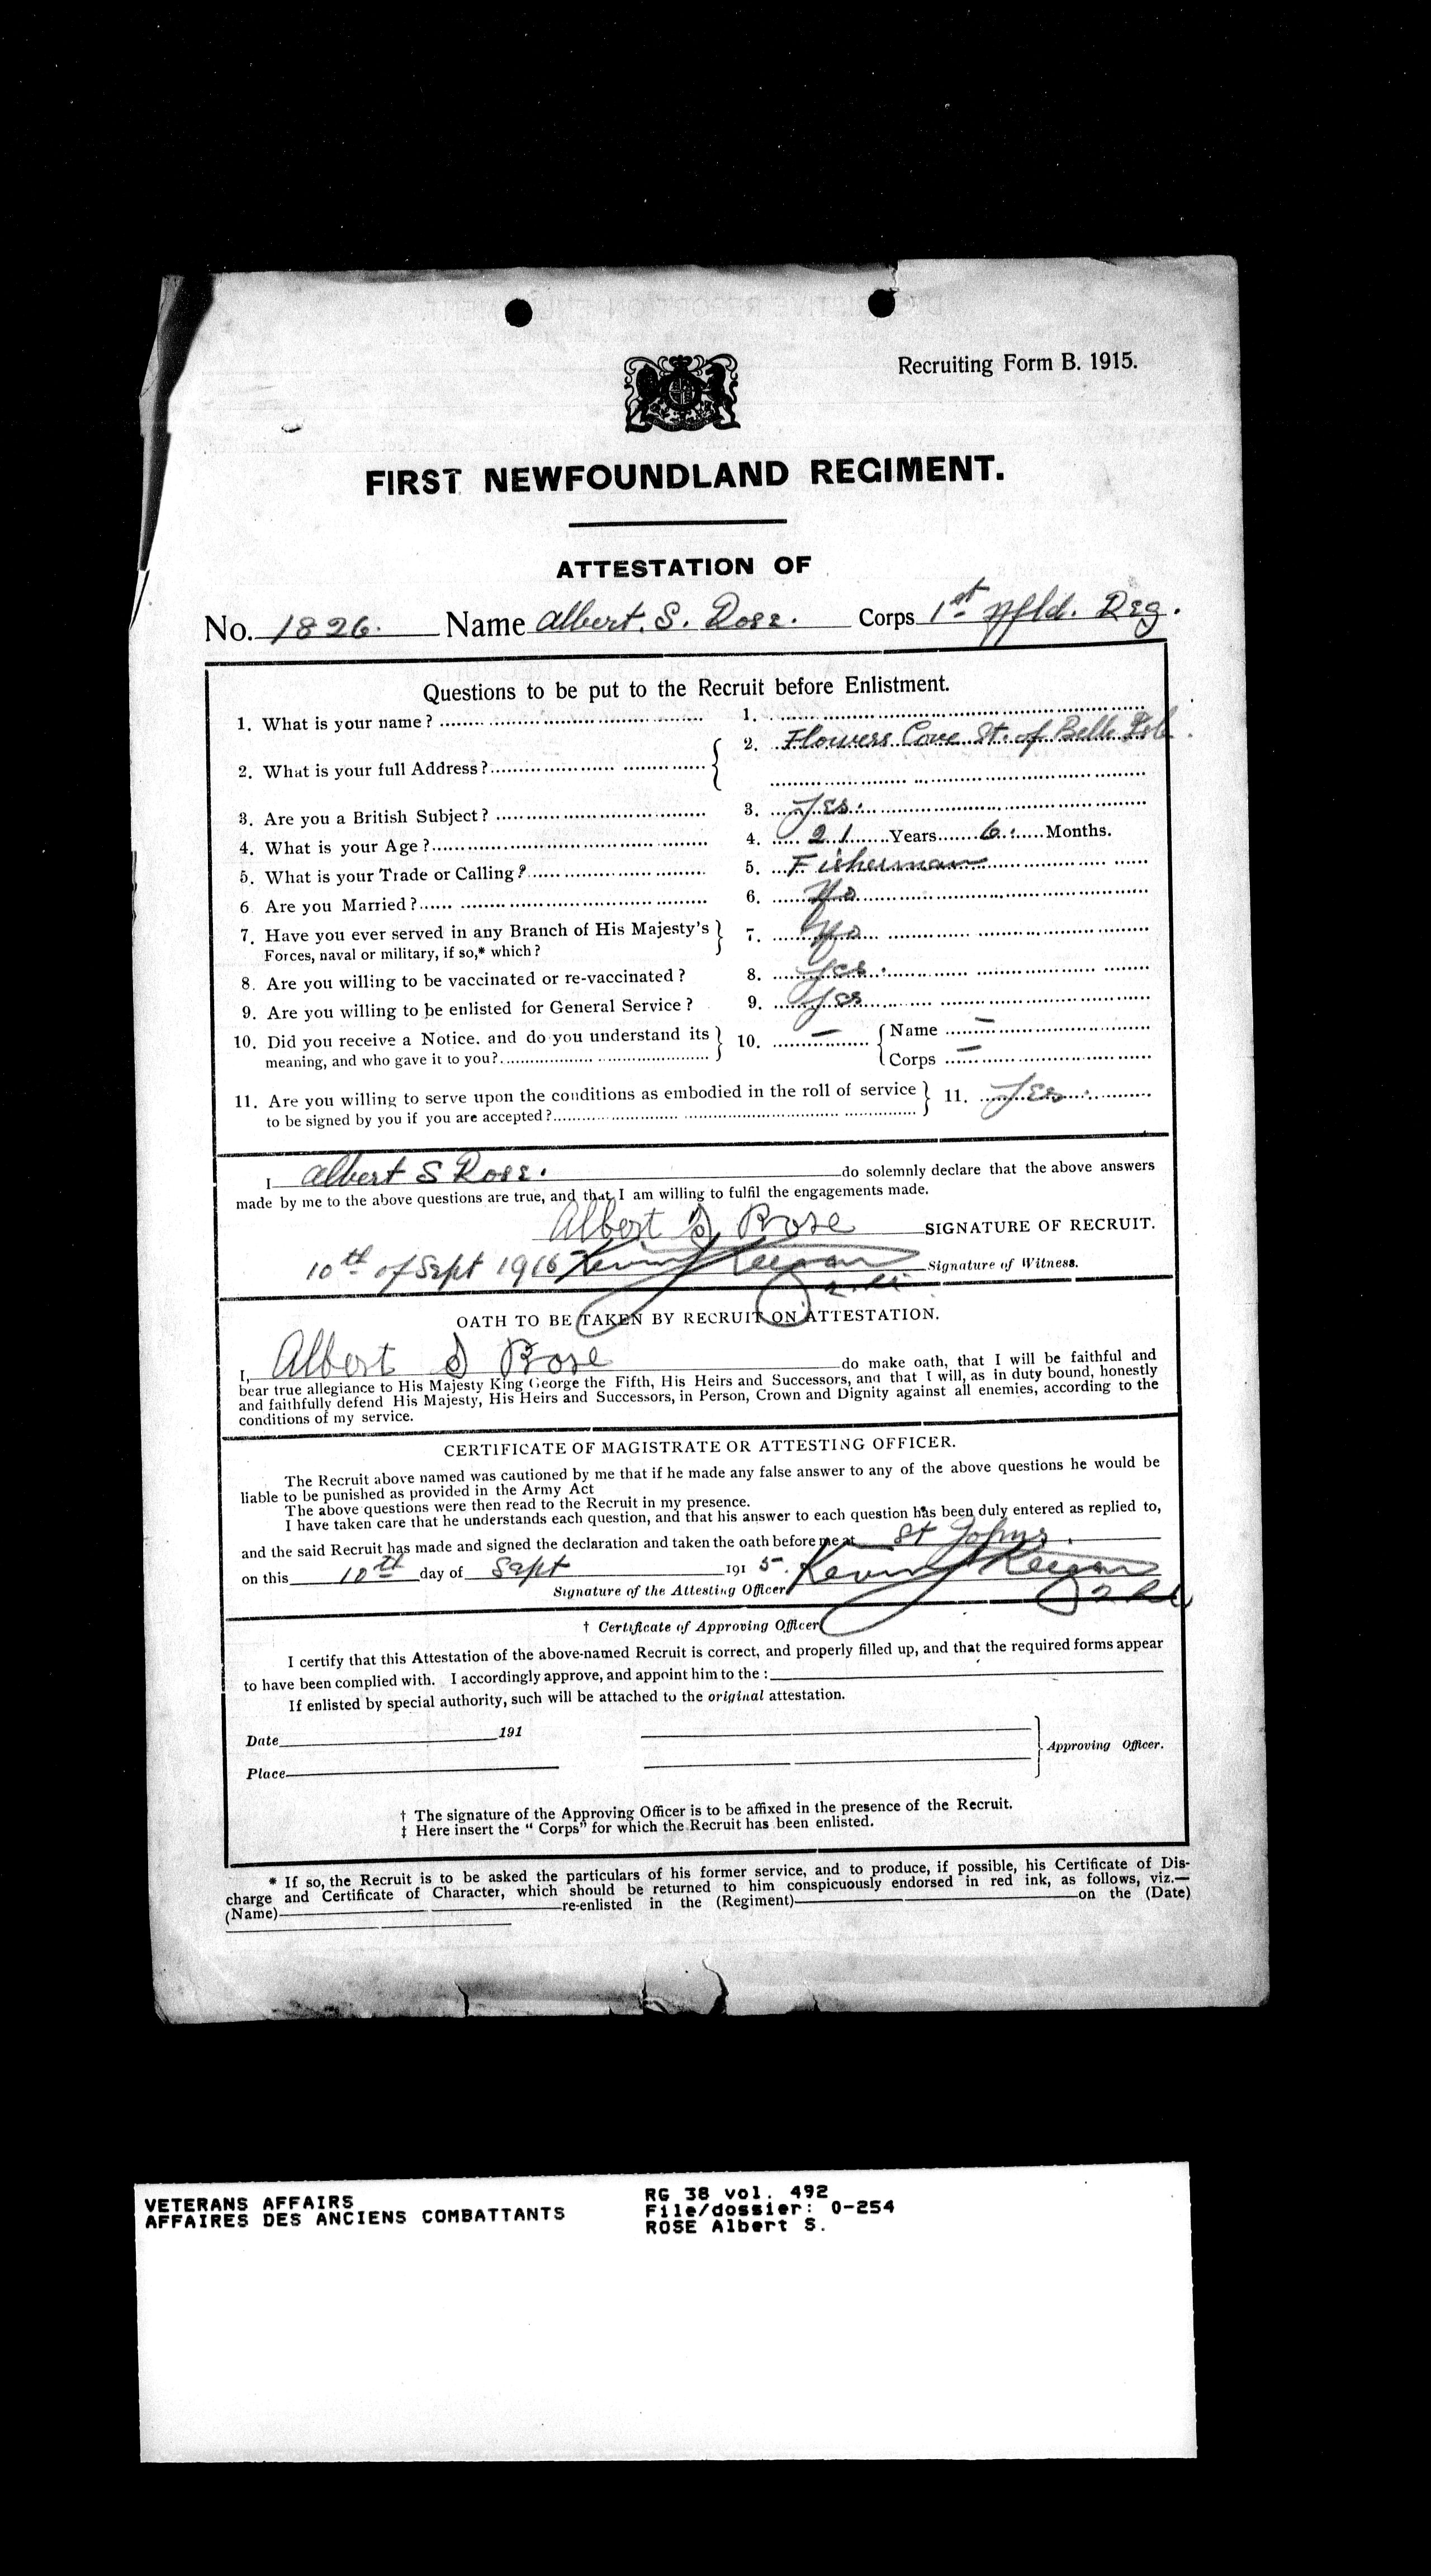 Recruiting Form B. 1915.
FIRST NEWFOUNDLAND REGIMENT.
ATTESTATION OF
No. 1826. Name Albert. S. Rose. Corps 1st Nfld. Reg.
Questions to be put to the Recruit before Enlistment.
1. What is your name? 1.
2. What is your full Address? 2. Flowers Cove St. of Belle Isle.
3. Are you a British Subject? 3. Yes.
4. What is your Age? 4. 21 Years 6. Months.
5. What is your Trade or Calling? 5. Fisherman
6 Are you Married? 6. No
7. Have you ever served in any Branch of His Majesty's
Forces, naval or military, if so,* which? 7. No
8. Are you willing to be vaccinated or re-vaccinated? 8. Yes.
9. Are you willing to be enlisted for General Service? 9. Yes
10. Did you receive a Notice. and do you understand its
meaning, and who gave it to you? 10. — Name —
Corps —
11. Are you willing to serve upon the conditions as embodied in the roll of service
to be signed by you if you are accepted? 11. Yes.
I Albert S Rose. do solemnly declare that the above answers
made by me to the above questions are true, and that I am willing to fulfil the engagements made.
Albert S Rose SIGNATURE OF RECRUIT.
10th of Sept 1916 Kevin J Keegan Signature of Witness.
OATH TO BE TAKEN BY RECRUIT ON ATTESTATION.
I, Albert S Rose do make oath, that I will be faithful and
bear true allegiance to His Majesty King George the Fifth, His Heirs and Successors, and that I will, as in duty bound, honestly
and faithfully defend His Majesty, His Heirs and Successors, in Person, Crown and Dignity against all enemies, according to the
conditions of my service.
CERTIFICATE OF MAGISTRATE OR ATTESTING OFFICER.
The Recruit above named was cautioned by me that if he made any false answer to any of the above questions he would be
liable to be punished as provided in the Army Act
The above questions were then read to the Recruit in my presence.
I have taken care that he understands each question, and that his answer to each question has been duly entered as replied to,
and the said Recruit has made and signed the declaration and taken the oath before me at St Johns.
on this 10th day of Sept 1915. Kevin J Keegan
Signature of the Attesting Officer
† Certificate of Approving Officer
I certify that this Attestation of the above-named Recruit is correct, and properly filled up, and that the required forms appear
to have been complied with. I accordingly approve, and appoint him to the :
If enlisted by special authority, such will be attached to the original attestation.
Date 191
Place
Approving Officer.
† The signature of the Approving Officer is to be affixed in the presence of the Recruit.
‡ Here insert the "Corps" for which the Recruit has been enlisted.
* If so, the Recruit is to be asked the particulars of his former service, and to produce, if possible, his Certificate of Dis-
charge and Certificate of Character, which should be returned to him conspicuously endorsed in red ink, as follows, viz.—
(Name) re-enlisted in the (Regiment) on the (Date)
VETERANS AFFAIRS
AFFAIRES DES ANCIENS COMBATTANTS
RG 38 vol. 492
File/dossier: 0-254
ROSE Albert S.